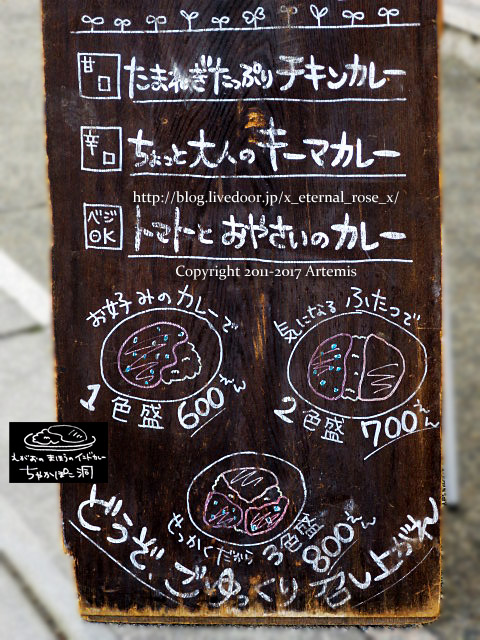 甘口
たまねぎたっぷりチキンカレー
辛口
ちょっと大人のキーマカレー
http://blog.livedoor.jp/x_eternal_rose_x/
ベジOK
トマトとおやさいのカレー
Copyright 2011-2017 Artemis
お好みのカレーで
1色盛 600えん
気になるふたつで
2色盛 700えん
えがおのまほうのインドカレー
ちゃかぽこ洞
せっかくだから 3色盛 800えん
どうぞ、ごゆっくり召し上がれ